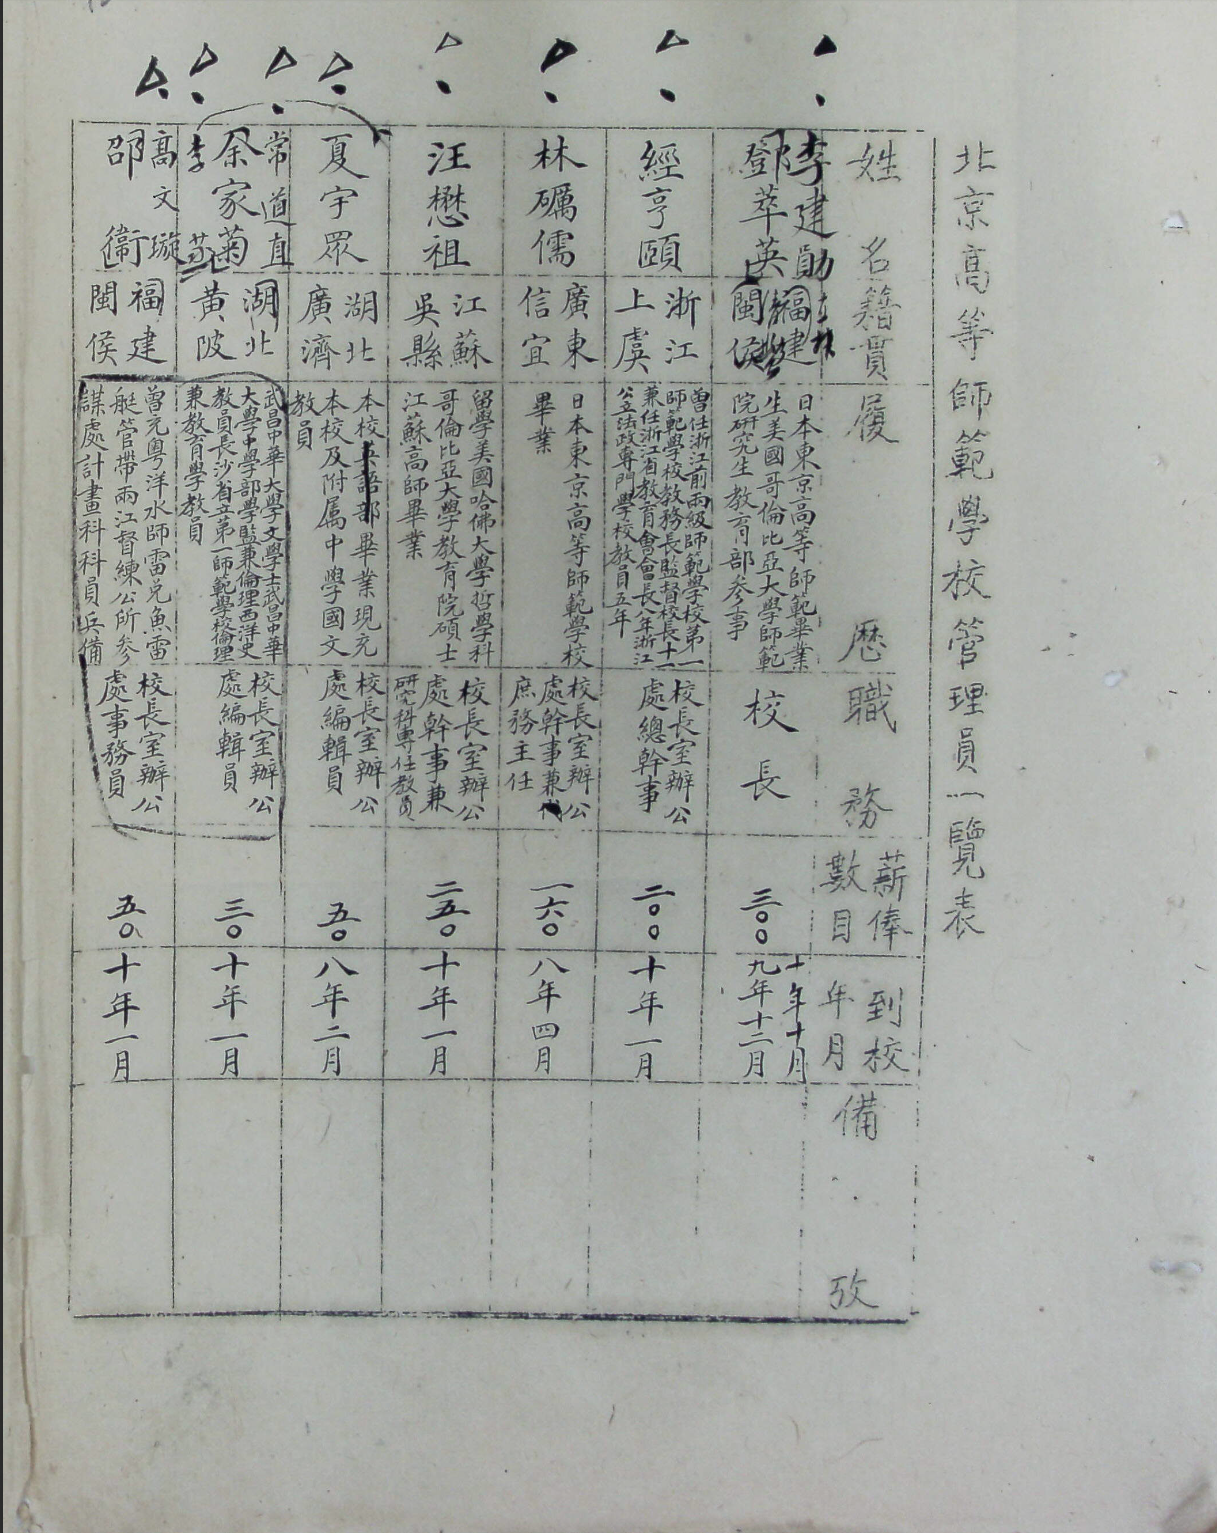 北京高等師範學校管理員一覽表
姓名
籍貫
履歷
職務
薪俸
數目
到校
年月
備攷
李建勛
鄧萃英
福建
閩侯
日本東京高等師範畢業
生美國哥倫比亞大學師範
院研究生教育部參事
校長
三〇〇
十年十月
九年十二月
經亨頤
浙江
上虞
曾任浙江前兩級師範學校第一
師範學校教務長監督校長十一
兼任浙江省教育會會長八年浙江
公立法政專門學校教員五年
校長室辦公
處總幹事
二〇〇
十年一月
林礪儒
廣東
信宜
日本東京高等師範學校
畢業
校長室辦公
處幹事兼代
庶務主任
一六〇
八年四月
汪懋祖
江蘇
吳縣
留學美國哈佛大學哲學科
哥倫比亞大學教育院碩士
江蘇高師畢業
校長室辦公
處幹事兼
研究科專任教員
二五〇
十年一月
夏宇眾
湖北
廣濟
本校英語部畢業現充
本校及附属中學國文
教員
校長室辦公
處編輯員
五〇
八年二月
常道直
余家菊
李
湖北
黃陂
武昌中華大學文學士武昌中華
大學中學部學監兼倫理西洋史
教員長沙省立第一師範學校倫理
兼教育學教員
校長室辦公
處編輯員
三〇
十年一月
高文璇
邵衞
福建
閩侯
曾充粵洋水師雷兑魚雷
艇管帶兩江督練公所參
謀處計畫科科員兵備
校長室辦公
處事務員
五〇
十年一月